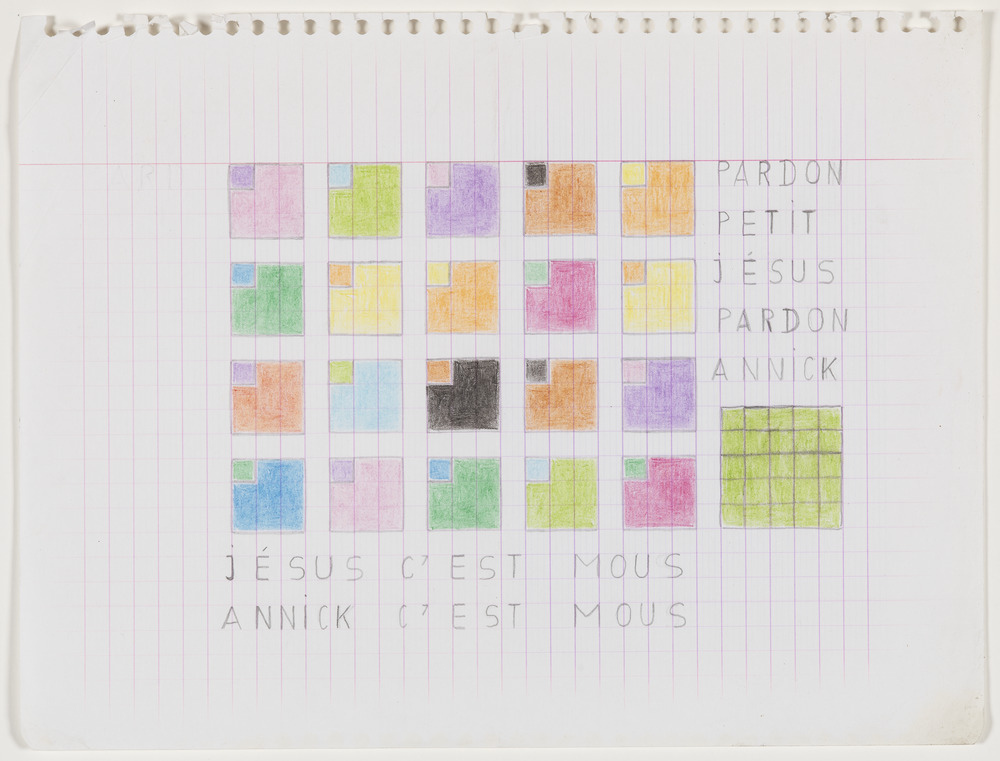 PARDON
PETIT
jÉSUS
PARDON
ANNiCK
jÉSUS C'EST MOUS
ANNiCK C'EST MOUS